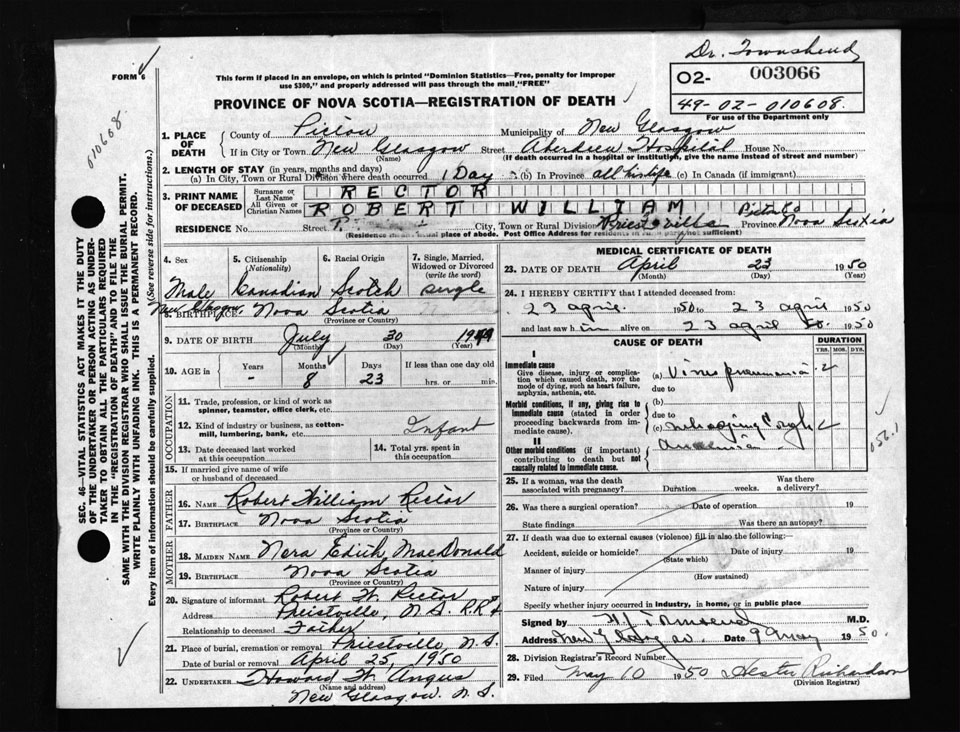 Dr. Townshend
FORM 6
This form if placed in an envelope, on which is printed "Dominion Statistics—Free, penalty for improper
use $300," and properly addressed will pass through the mail "FREE"
O2- 003066
49-02-010608.
For use of the Department only
PROVINCE OF NOVA SCOTIA—REGISTRATION OF DEATH
010608
1. PLACE OF DEATH County of Pictou Municipality of New Glasgow
If in City or Town New Glasgow Street Aberdeen Hospital House No.
(Name) (If death occurred in a hospital or institution, give the name instead of street and number)
2. LENGTH OF STAY (in years, months and days)
(a) In City, Town or Rural Division where death occurred 1 Day (b) In Province all his life (c) In Canada (if immigrant)
3. PRINT NAME OF DECEASED Surname or Last Name RECTOR
All Given or Christian Names ROBERT WILLIAM
Pictou Co
RESIDENCE No. Street City, Town or Rural Division Priestville Province Nova Scotia
(Residence means usual place of abode. Post Office Address for residents in rural parts not sufficient)
4. Sex 5. Citizenship (Nationality) 6. Racial Origin 7. Single, Married, Widowed or Divorced (write the word)
Male Canadian Scotch single
New Glasgow,
8. BIRTHPLACE Nova Scotia
(Province or Country)
9. DATE OF BIRTH July 30 1949
(Month) (Day) (Year)
10. AGE in Years Months Days If less than one day old
- 8 23 hrs. or min.
OCCUPATION
11. Trade, profession, or kind of work as spinner, teamster, office clerk, etc.
12. Kind of industry or business, as cotton-mill, lumbering, bank, etc. Infant
13. Date deceased last worked at this occupation 14. Total yrs. spent in this occupation
15. If married give name of wife or husband of deceased
FATHER
16. NAME Robert William Rector
17. BIRTHPLACE Nova Scotia
(Province or Country)
MOTHER
18. MAIDEN NAME Nora Edith MacDonald
19. BIRTHPLACE Nova Scotia
(Province or Country)
20. Signature of informant Robert W. Rector
Address Priestville, N.S. R.R.
Relationship to deceased Father
21. Place of burial, cremation or removal Priestville, N.S.
Date of burial or removal April 25, 1950
22. UNDERTAKER Howard W. Angus
(Name and address)
New Glasgow N.S.
MEDICAL CERTIFICATE OF DEATH
23. DATE OF DEATH April 23 1950
(Month) (Day) (Year)
24. I HEREBY CERTIFY that I attended deceased from:
23 april 1950 to 23 april 1950
and last saw him alive on 23 april 1950
CAUSE OF DEATH DURATION
YRS. MOS. DYS.
I
Immediate cause
Give disease, injury or complication which caused death, NOT the mode of dying, such as heart failure, asphyxia, asthenia, etc.
(a) Virus pneumonia 2
due to
Morbid conditions, if any, giving rise to immediate cause (stated in order proceeding backwards from immediate cause).
(b)
due to
(c) whooping cough 2
II
Other morbid conditions (if important) contributing to death but not causally related to immediate cause.
Anaemia
056.1
25. If a woman, was the death associated with pregnancy? Duration weeks. Was there a delivery?
26. Was there a surgical operation? Date of operation 19
State findings Was there an autopsy?
27. If death was due to external causes (violence) fill in also the following:—
Accident, suicide or homicide? Date of injury 19
(State which)
Manner of injury
(How sustained)
Nature of injury
Specify whether injury occurred in industry, in home, or in public place
Signed by Townsend M.D.
Address New Glasgow Date 9 May 1950.
28. Division Registrar's Record Number
29. Filed May 10 1950 Hester Richardson
(Division Registrar)
SEC. 46—VITAL STATISTICS ACT MAKES IT THE DUTY
OF THE UNDERTAKER OR PERSON ACTING AS UNDER-
TAKER TO OBTAIN ALL THE PARTICULARS REQUIRED
IN THE "REGISTRATION OF DEATH" AND TO FILE THE
SAME WITH THE DIVISION REGISTRAR WHO SHALL ISSUE THE BURIAL PERMIT.
WRITE PLAINLY WITH UNFADING INK. THIS IS A PERMANENT RECORD.
Every item of information should be carefully supplied. (See reverse side for instructions.)